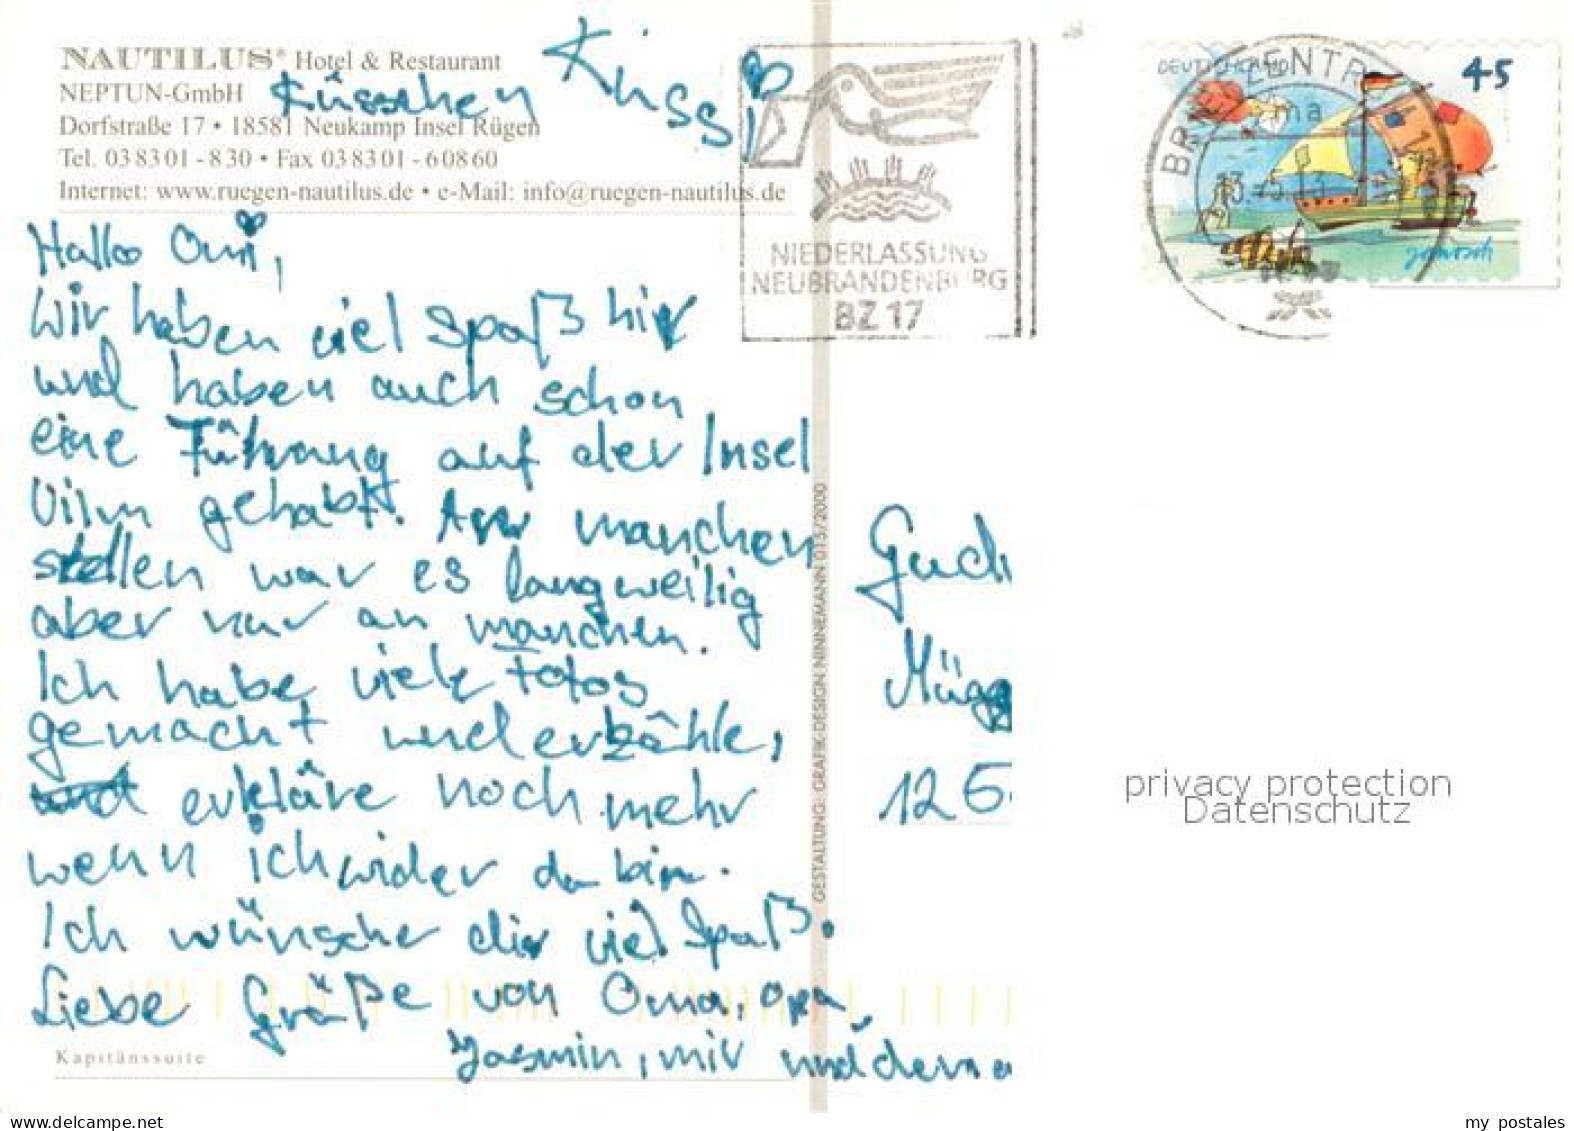 NAUTILUS® Hotel & Restaurant
NEPTUN-GmbH
Dorfstraße 17 • 18581 Neukamp Insel Rügen
Tel. 038301-830 • Fax 038301-60860
Internet: www.ruegen-nautilus.de • e-Mail: info@ruegen-nautilus.de
Küsschen Kuss!
Hallo Omi,
Wir haben viel Spaß hier
und haben auch schon
eine Führung auf der Insel
Vilm gehabt. An manchen
stellen war es langweilig
aber nur an manchen.
Ich habe viele Fotos
gemacht und erzähle,
erkläre noch mehr
wenn ich wider da bin.
Ich wünsche dir viel Spaß.
Liebe Grüße von Oma, Opa,
Jasmin, mir und dem
Kapitänssuite
GESTALTUNG: GRAFIK-DESIGN NINNEMANN 015/2000
NIEDERLASSUNG
NEUBRANDENBURG
BZ 17
DEUTSCHLAND
45
Janosch
BRIEFZENTR
privacy protection
Datenschutz
www.delcampe.net
my postales